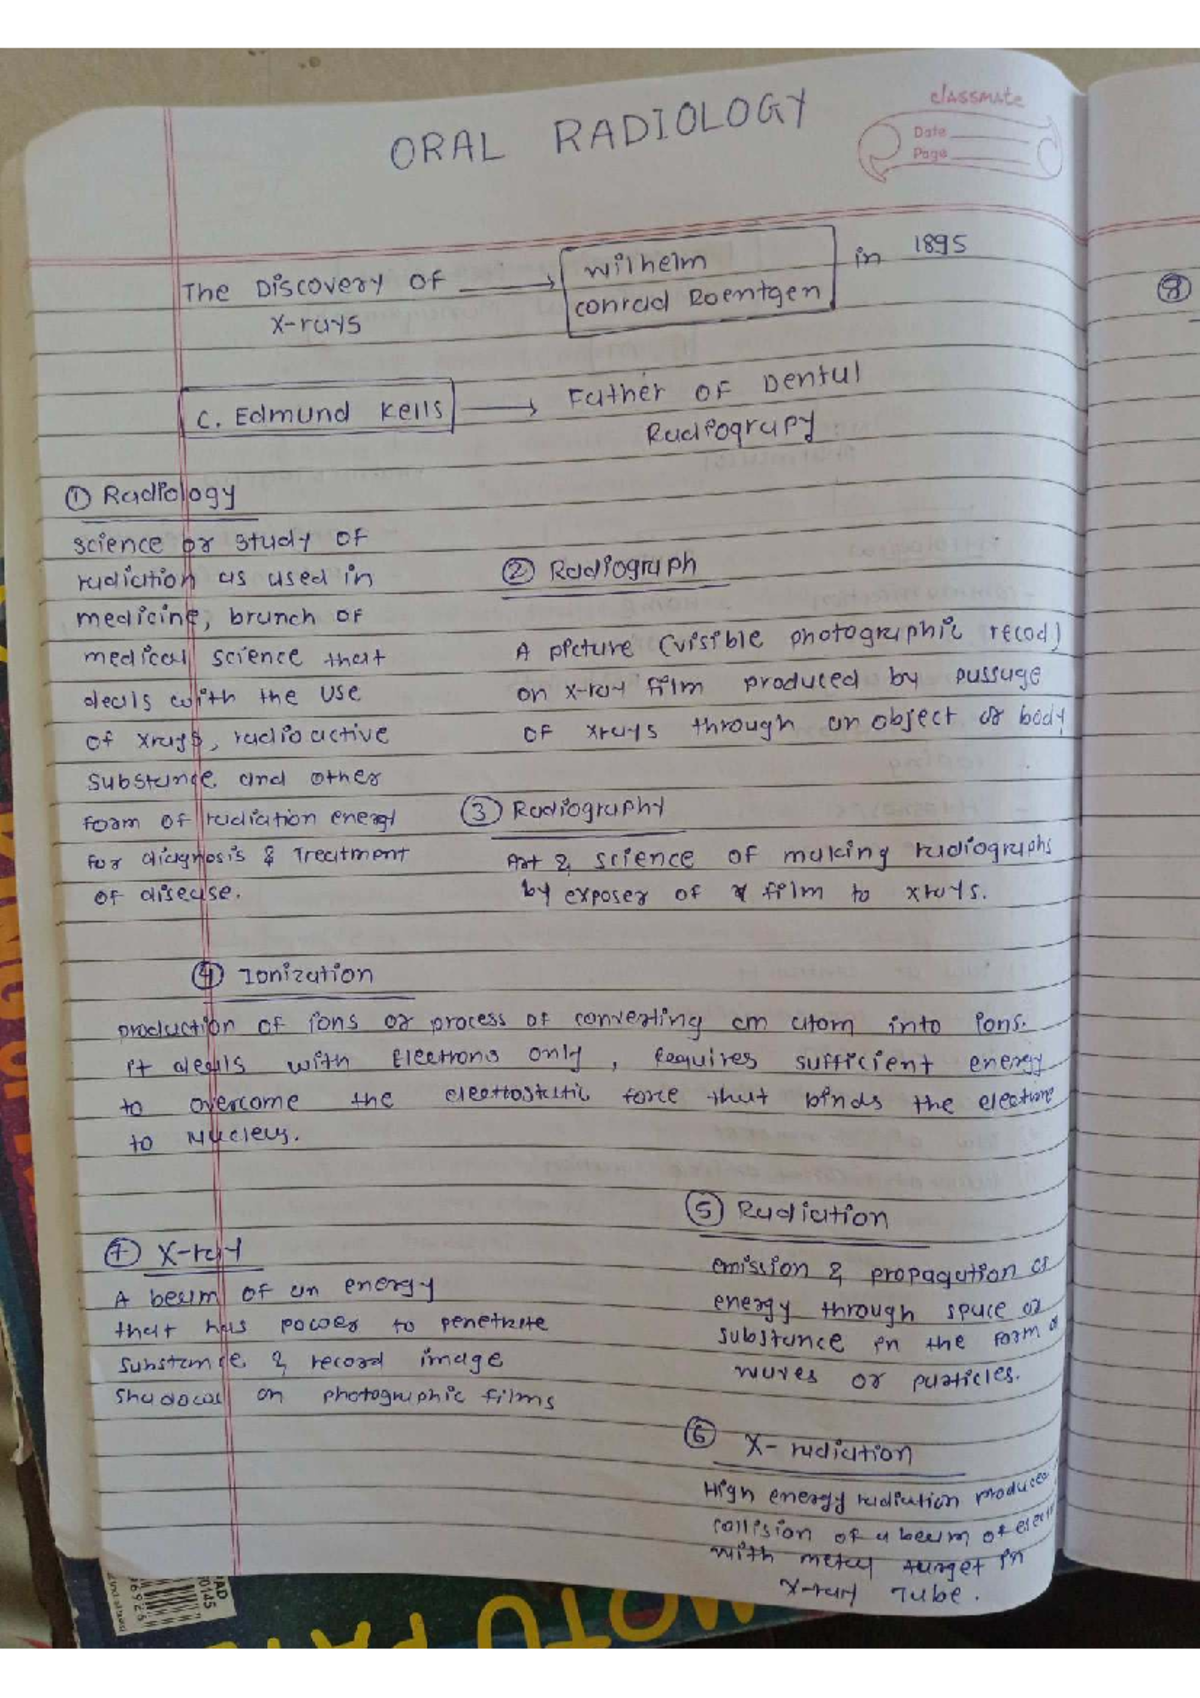 classmate
Date
Page
ORAL RADIOLOGY
The Discovery of → Wilhelm Conrad Roentgen in 1895
X-rays
C. Edmund Kells → Father of Dental
Radiography
① Radiology
science or study of
radiation as used in
medicine, branch of
medical science that
deals with the use
of xrays, radioactive
substance and other
form of radiation energy
for diagnosis & Treatment
of disease.
② Radiograph
A picture (visible photographic recod)
on x-ray film produced by passage
of xrays through an object or body
③ Radiography
Art & science of making radiographs
by exposer of film to xrays.
④ Ionization
production of ions or process of converting an atom into ions.
it deals with Electrons only, Requires sufficient energy
to overcome the electrostatic force that binds the electrons
to Nucleus.
⑤ Radiation
emission & propagation of
energy through space or
substance in the form of
waves or particles.
⑦ X-ray
A beam of an energy
that has power to penetrate
substance & record image
shadows on photographic films
⑥ X-radiation
High energy radiation produced
collision of a beam of
with metal target in
X-ray Tube.
⑧